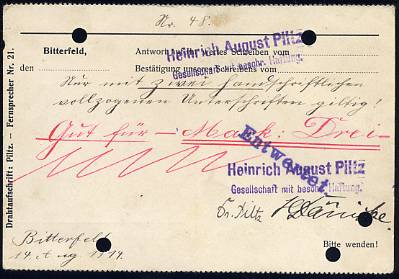 Nr. 48.
Bitterfeld, Antwort auf Ihr wertes Schreiben vom
Heinrich August Piltz
den Bestätigung unseres Schreibens vom
Gesellschaft mit beschr. Haftung.
Nur mit zwei handschriftlichen
vollzogenen Unterschriften giltig!
Gut für – Mark: Drei –
Entwertet
Heinrich August Piltz
Gesellschaft mit beschr. Haftung.
Fr. Piltz
Bitterfeld
14. Aug 1914.
Bitte wenden!
Drahtaufschrift: Piltz. — Fernsprecher Nr. 21.